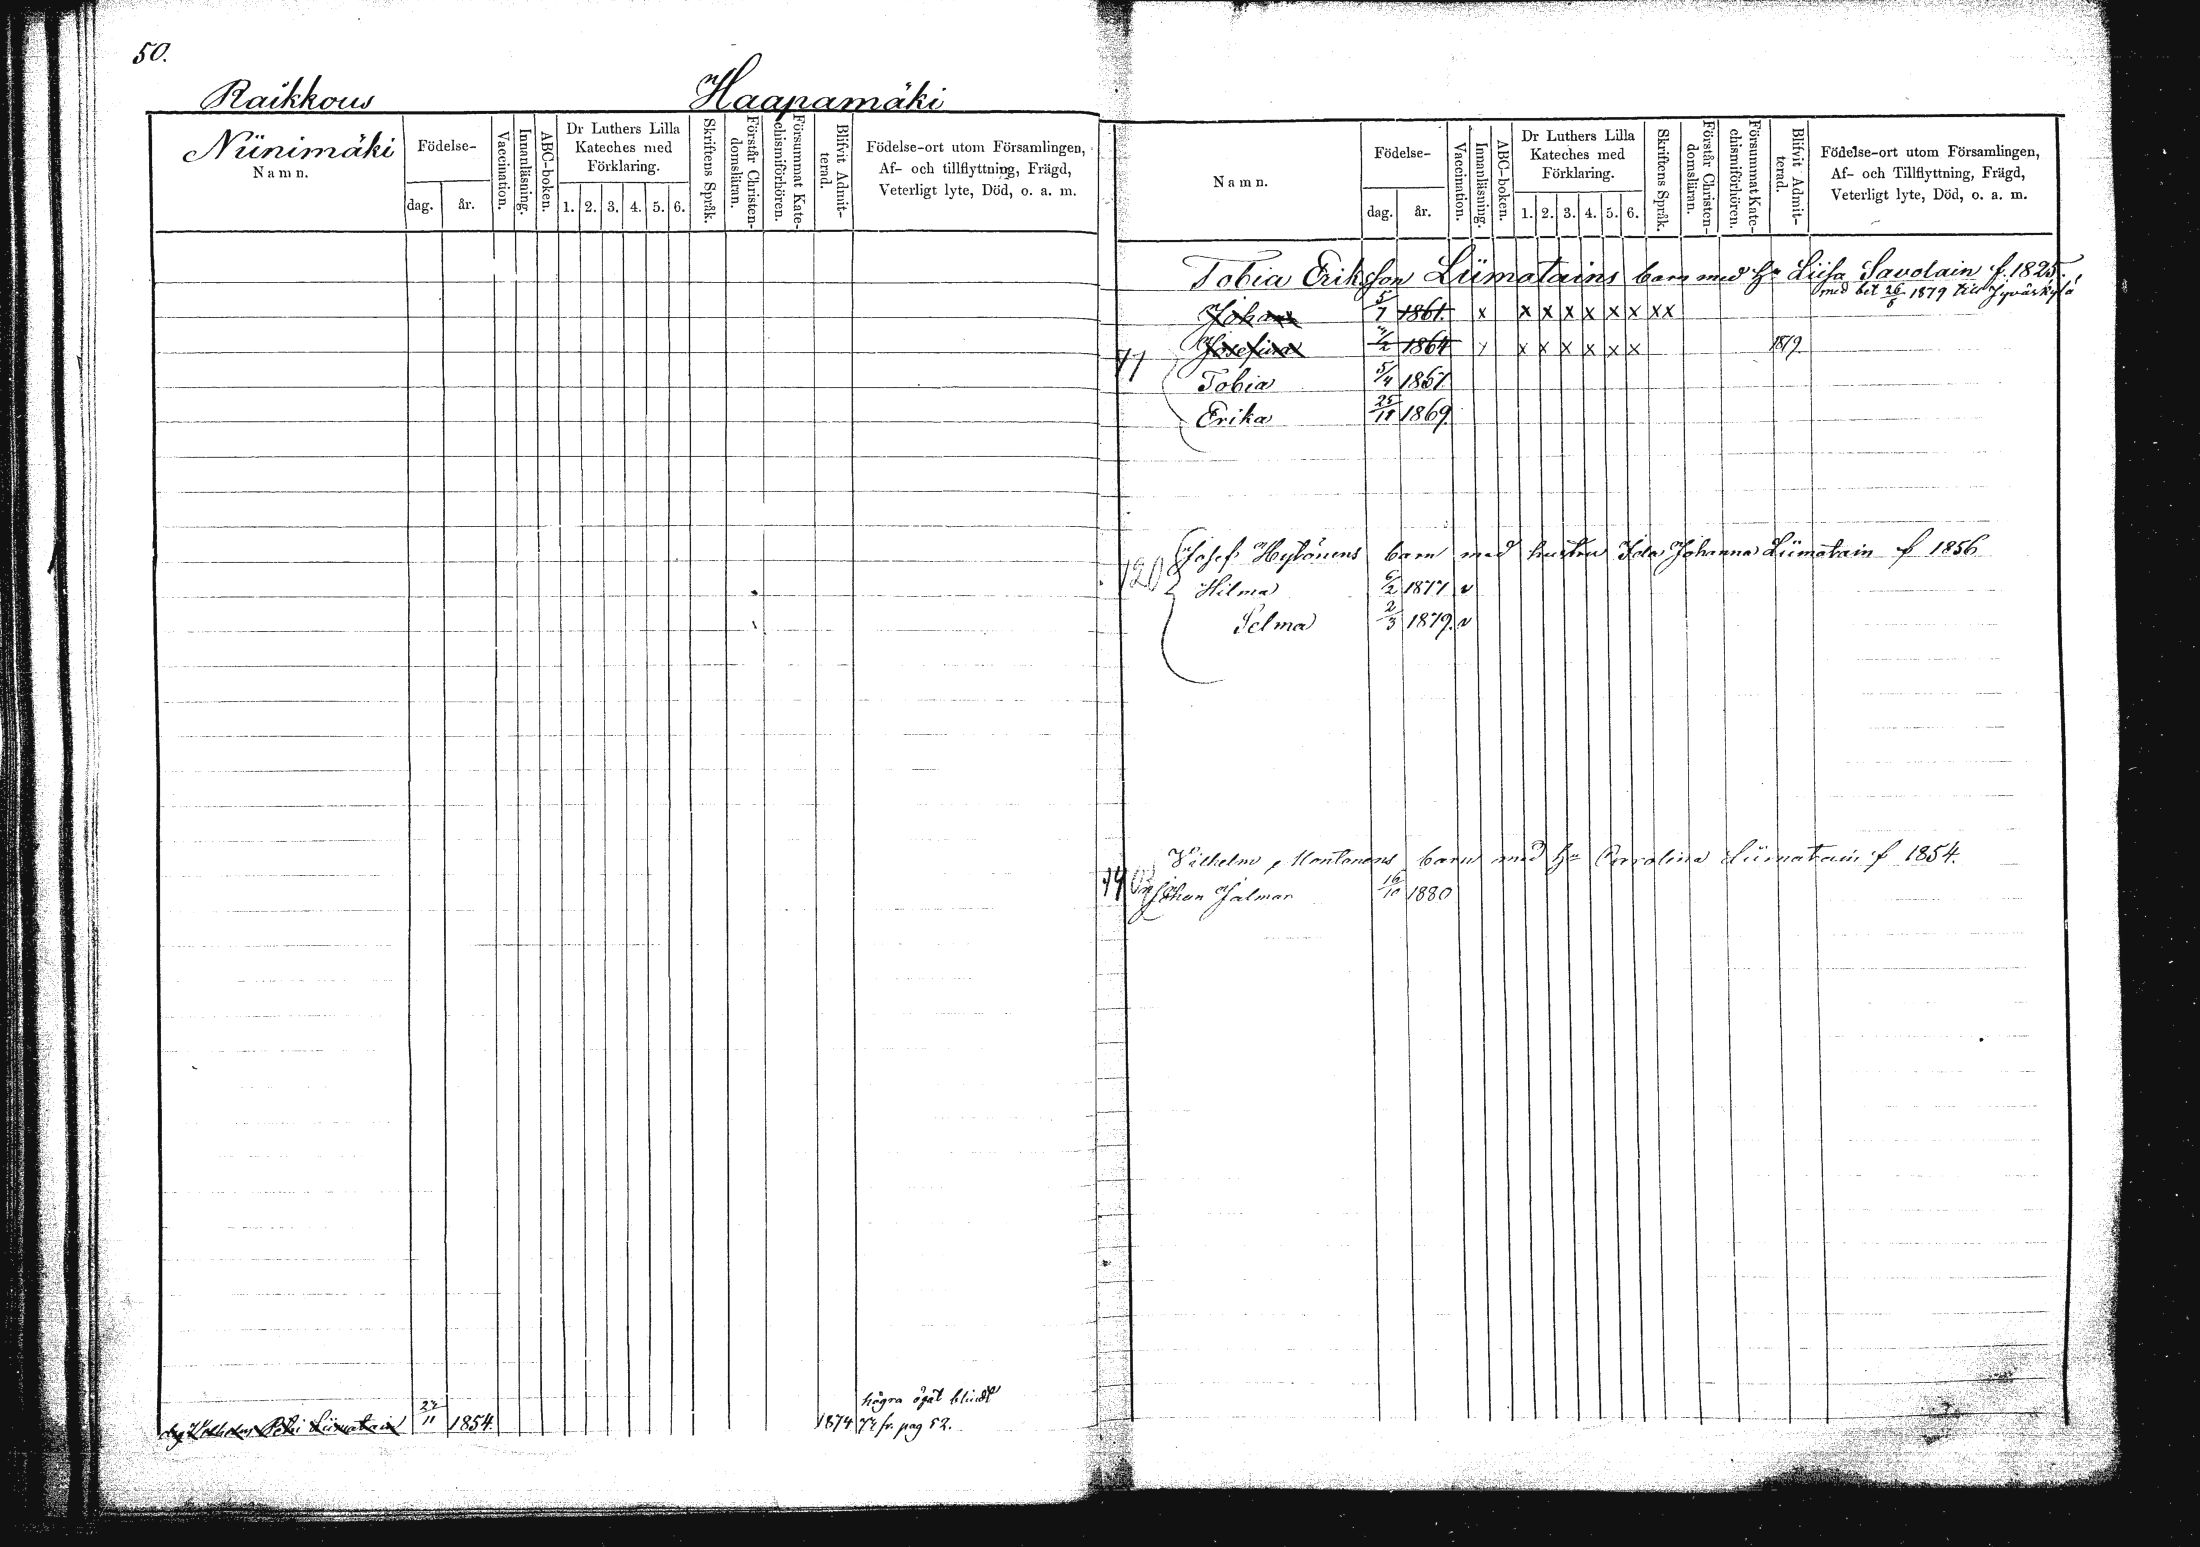 50.
Raikkous Haapamäki
Niinimäki
Namn. Födelse- dag. år. Vaccination. Innanläsning. ABC-boken. Dr Luthers Lilla Kateches med Förklaring. 1. 2. 3. 4. 5. 6. Skriftens Språk. Förstår Christen-domsläran. Försummat Kate-chismiförhören. Blifvit Admit-terad. Födelse-ort utom Församlingen, Af- och tillflyttning, Frägd, Veterligt lyte, Död, o. a. m.
högra ögat blindt
Vilhelm Petri Liimatain 11 1854. 1874 fr. pag 52.
Namn. Födelse- dag. år. Vaccination. Innanläsning. ABC-boken. Dr Luthers Lilla Kateches med Förklaring. 1. 2. 3. 4. 5. 6. Skriftens Språk. Förstår Christen-domsläran. Försummat Kate-chismiförhören. Blifvit Admit-terad. Födelse-ort utom Församlingen, Af- och Tillflyttning, Frägd, Veterligt lyte, Död, o. a. m.
Tobia Eriksson Liimatains barn med Hu Liisa Savolain f. 1825.
med bet 26/6 1879 till Jyväskylä
Johan 5/7 1861. x x x x x x x xx
Josefina 1864 x x x x x x 1879
Tobia 5/4 1867.
Erika 25/11 1869.
Josef Hytönens barn med hustru Ida Johanna Liimatain f 1856
120 Hilma 6/2 1877 v
Selma 2/3 1879. v
Vilhelm Kontonens barn med Hu Carolina Liimatain f 1854.
Johan Jalmar 16/10 1880